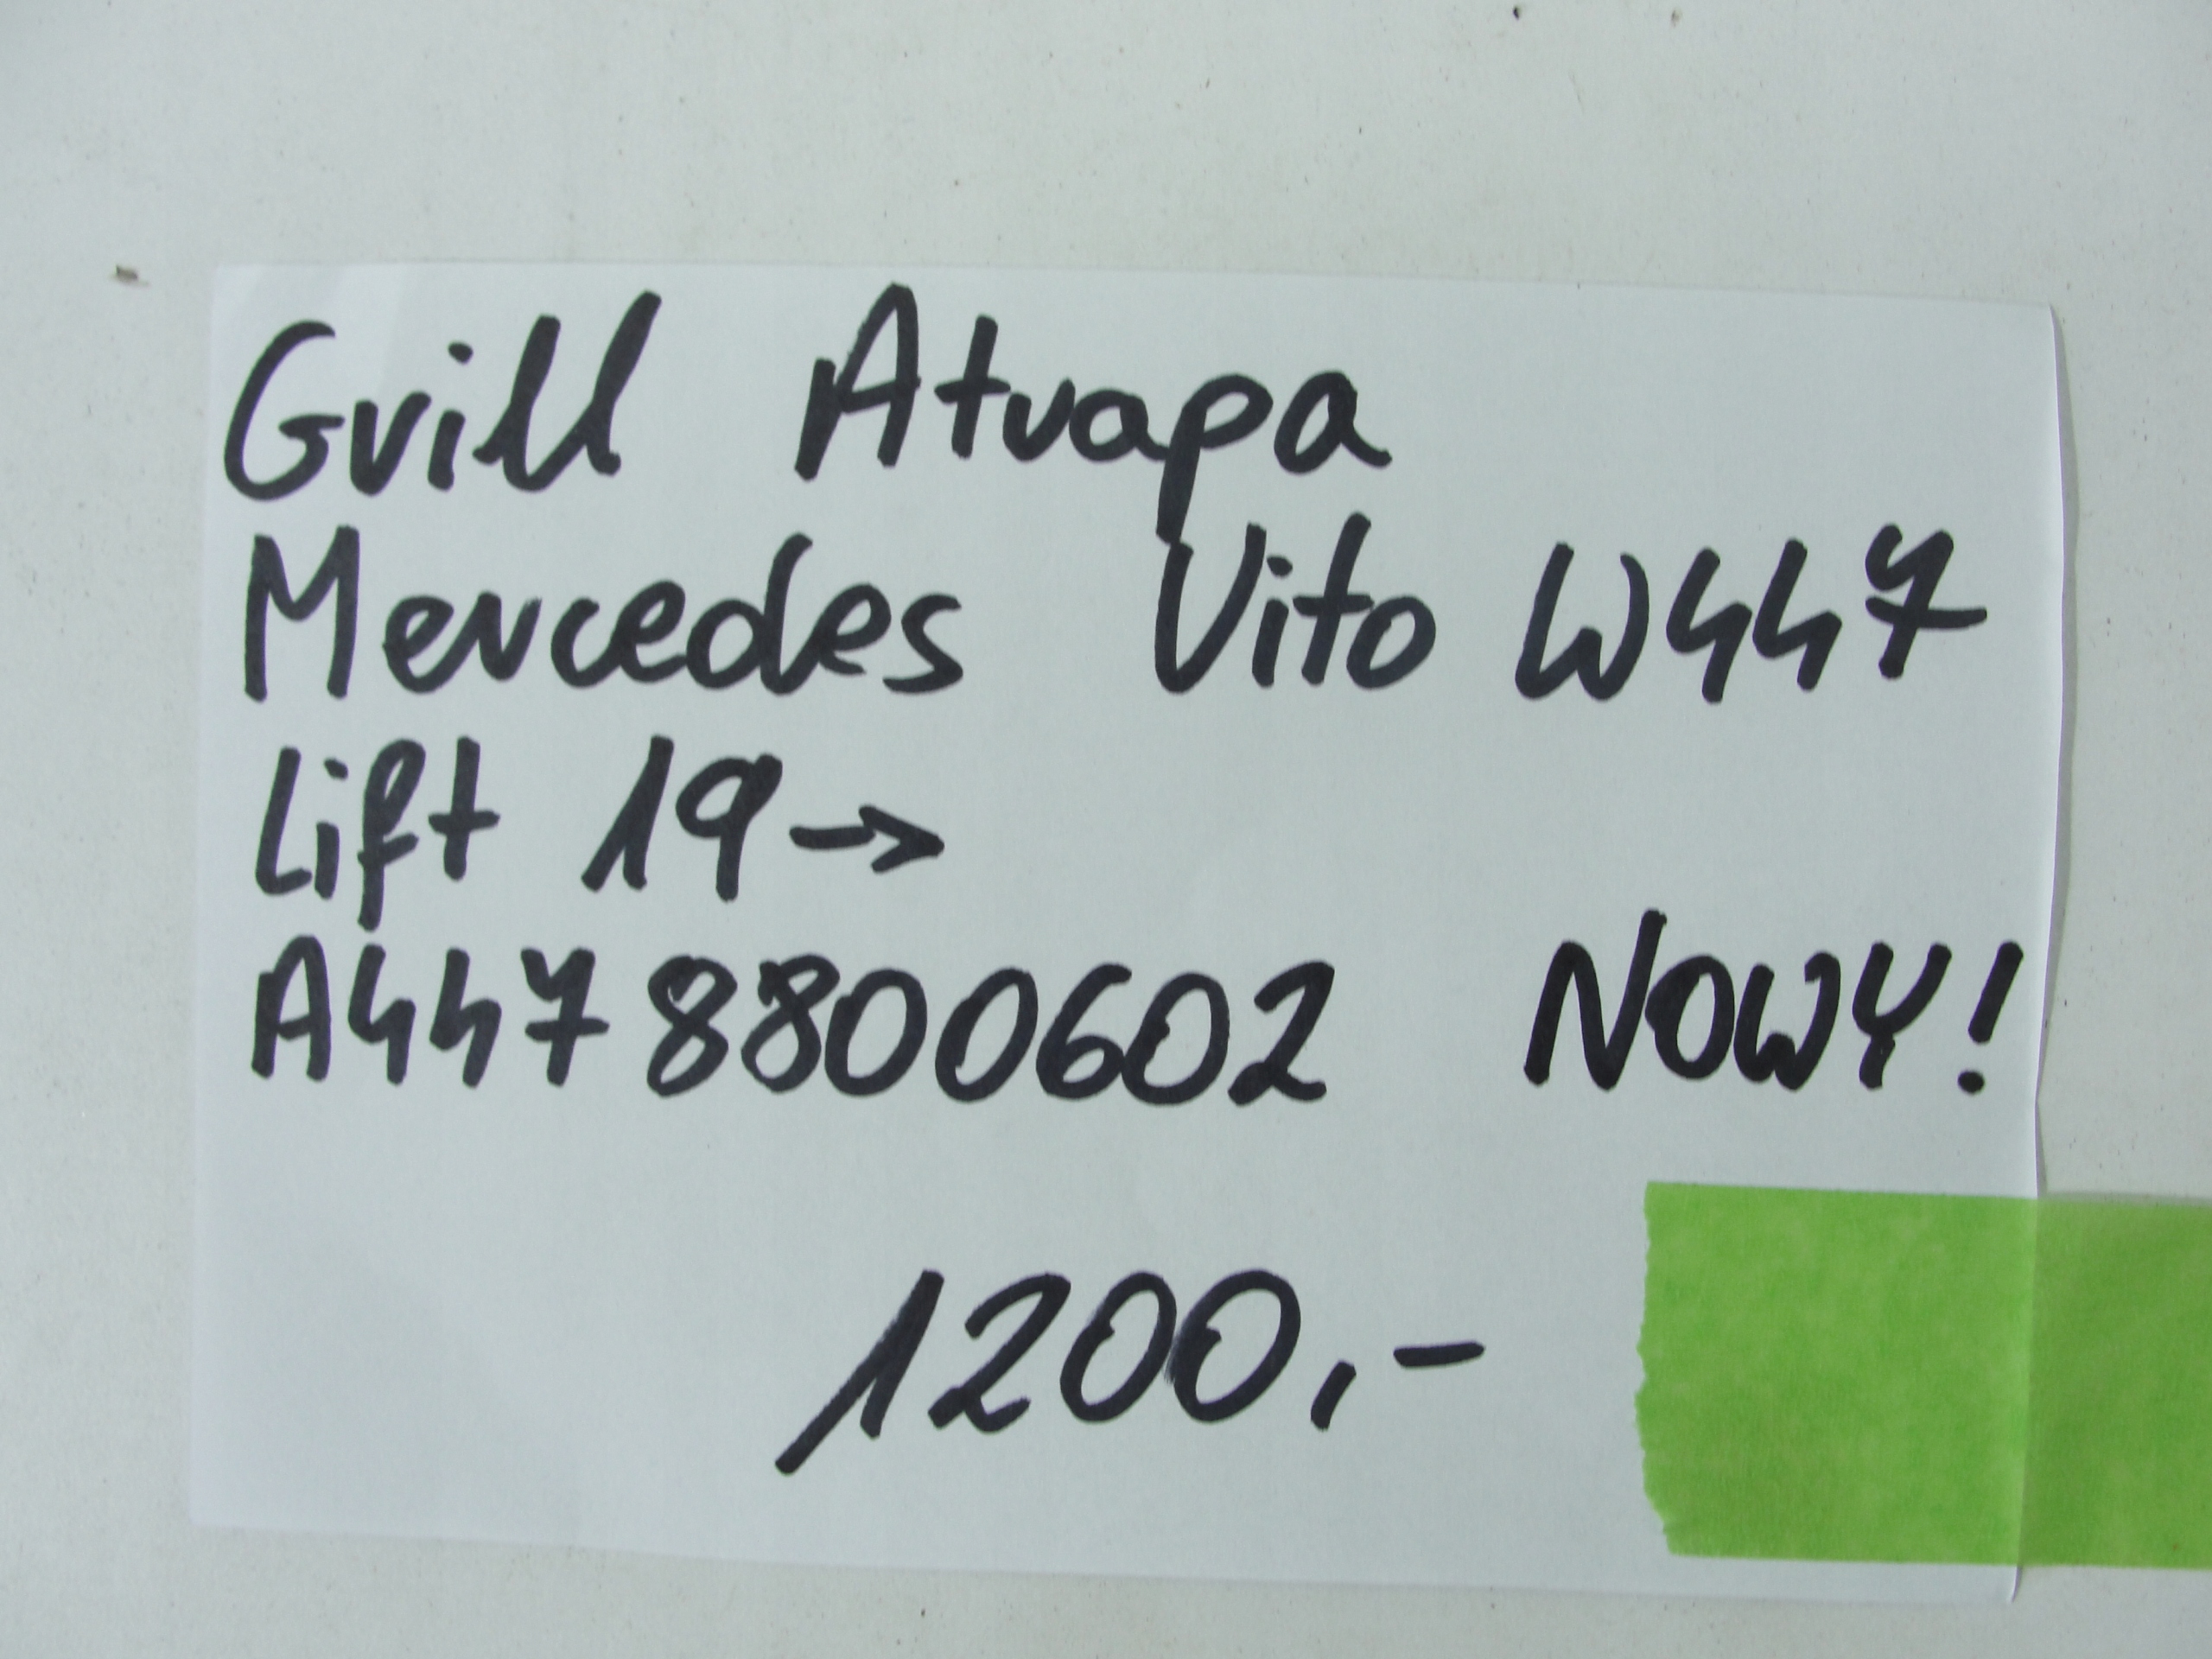 Grill Atrapa
Mercedes Vito W447
Lift 19→
A447 8800602 NOWY!
1200,-